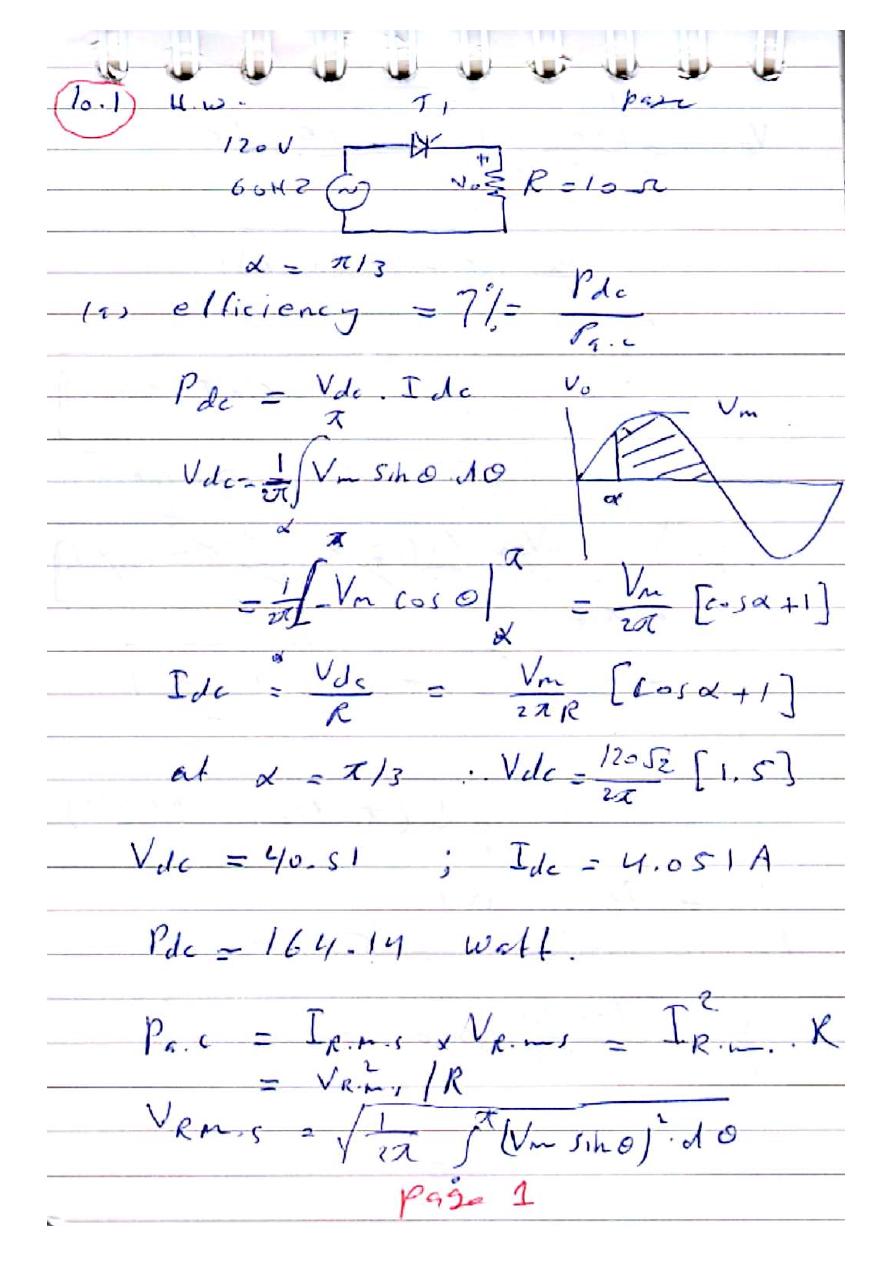 10.1 H.w. T1
120V
60HZ + Vo R = 10 Ω
α = π/3
(a) efficiency = η% = Pdc / Pa.c
Pdc = Vdc . Idc
Vo Vm α
Vdc = 1/2π ∫απ Vm sin θ dθ
= 1/2π [-Vm cos θ |απ = Vm/2π [cos α + 1]
Idc = Vdc/R = Vm/2πR [cos α + 1]
at α = π/3 ∴ Vdc = 120√2/2π [1.5]
Vdc = 40.51 ; Idc = 4.051 A
Pdc = 164.14 watt.
Pa.c = IR.m.s x VR.m.s = I²R.m. . R
= V²R.m.s / R
VR.m.s = √ 1/2π ∫π (Vm sin θ)² . dθ
page 1